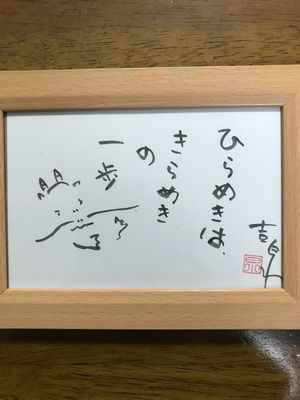 ひらめきは、
きらめき
の
一歩